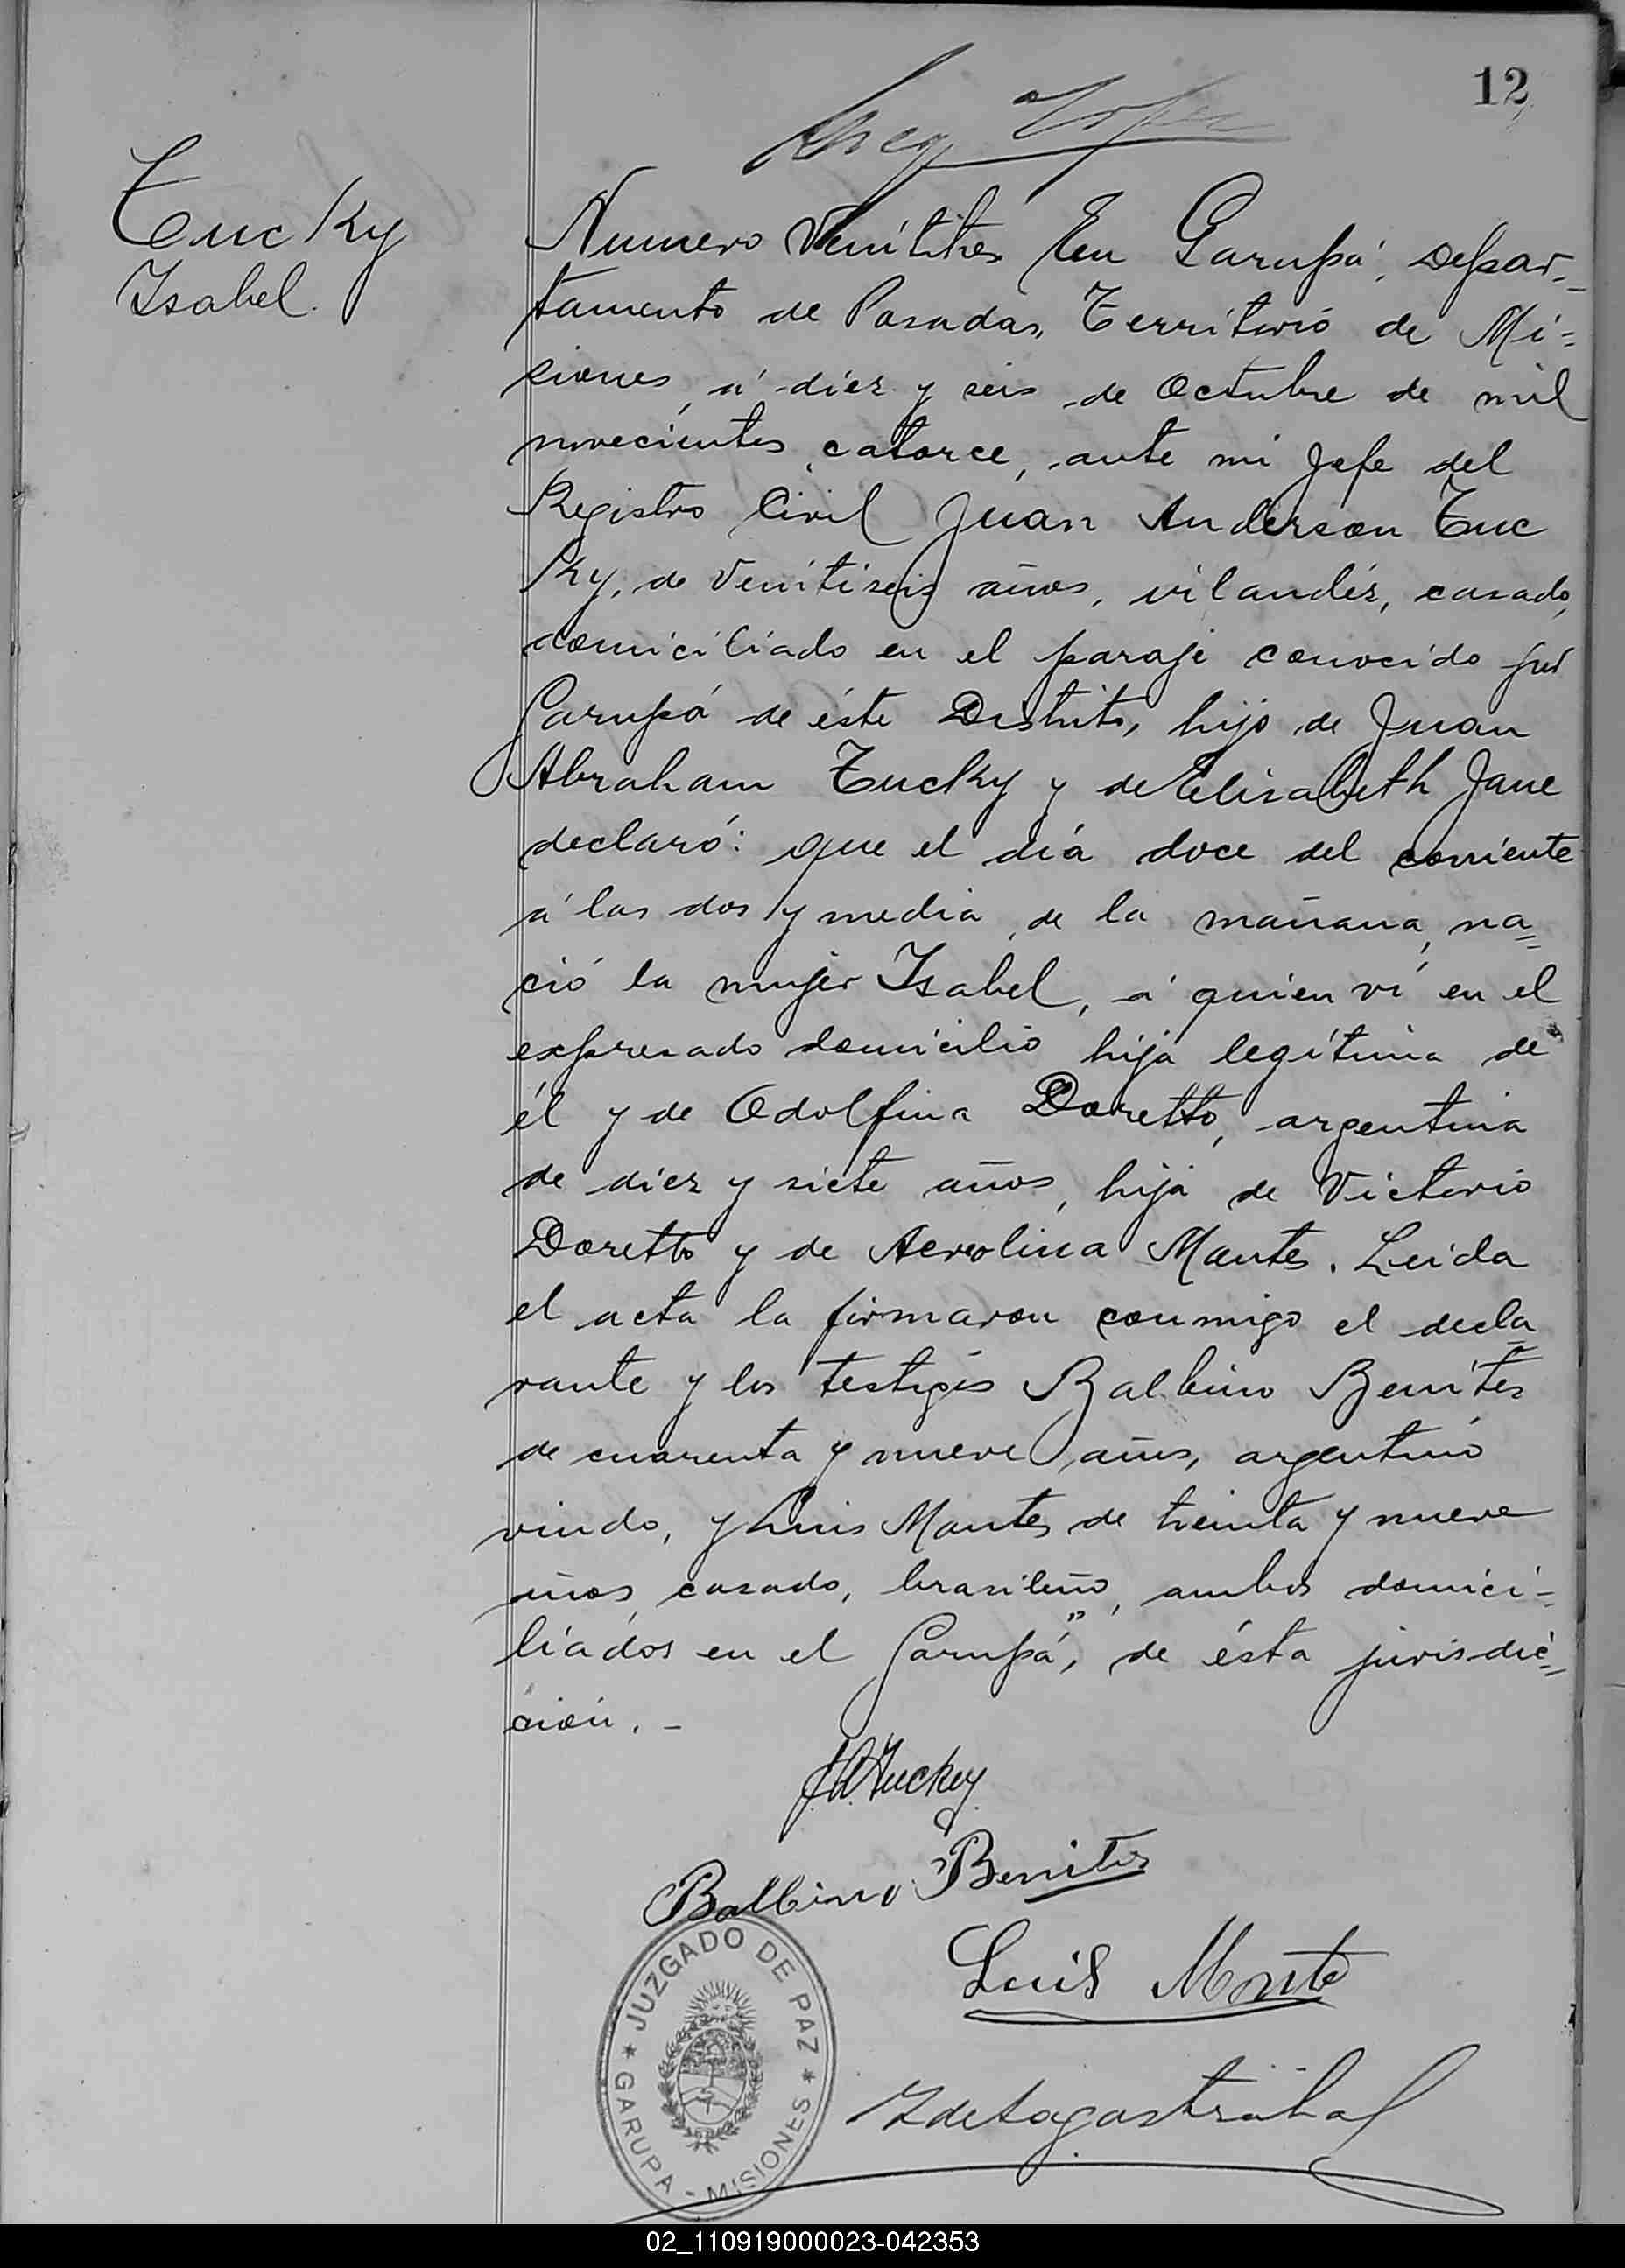 12
Tucky
Isabel.
Numero Veintitres En Garupá, Depar-
tamento de Posadas, Territorio de Mi=
siones, á diez y seis de Octubre de mil
novecientos catorce, ante mi Jefe del
Registro Civil Juan Anderson Tuc
ky, de veintiseis años, irlandés, casado,
domiciliado en el paraje conocido por
Garupá de éste Distrito, hijo de Juan
Abraham Tucky y de Elisabeth Jane
declaró: que el día doce del corriente
á las dos y media de la mañana, na=
ció la mujer Isabel, á quien ví en el
expresado domicilio hija legítima de
él y de Adolfina Doretto, argentina
de diez y siete años, hija de Victorio
Doretto y de Mantes. Leida
el acta la firmaron conmigo el decla=
rante y los testigos Balbino Benítez
de cuarenta y nueve años, argentino
viudo, y Luis Montes de treinta y nueve
años, casado, brasileño, ambos domici=
liados en el Garupá", de ésta jurisdic=
ción. -
J.A. Tuckey
Balbino Benites
Luis Monte
JUZGADO DE PAZ
GARUPA - MISIONES
02_110919000023-042353